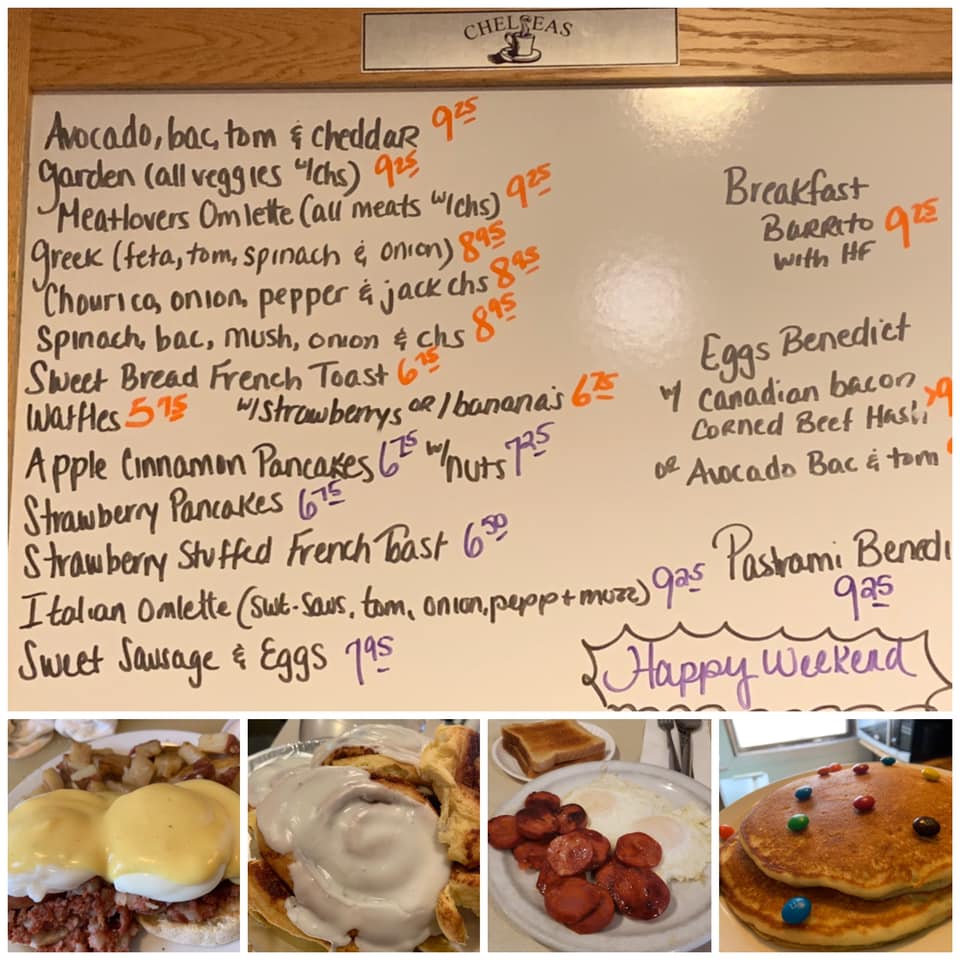 CHELSEAS
Avocado, bac, tom & cheddar 9 25
Garden (all veggies w/chs) 9 25
Meatlovers Omlette (all meats w/chs) 9 25
Greek (feta, tom, spinach & onion) 8 95
Chourico, onion, pepper & jack chs 8 95
Spinach, bac, mush, onion & chs 8 95
Sweet Bread French Toast 6 75
Waffles 5 75 w/strawberrys or/bananas 6 75
Apple Cinnamon Pancakes 6 75 w/nuts 7 25
Strawberry Pancakes 6 75
Strawberry Stuffed French Toast 6 50
Italian Omlette (swt-saus, tom, onion, pepp + mozz) 9 25
Sweet Sausage & Eggs 7 95
Breakfast
Burrito 9 25
with HF
Eggs Benedict
w/ Canadian bacon
Corned Beef Hash
or Avocado Bac & tom
Pastrami Benedi
9 25
Happy Weekend